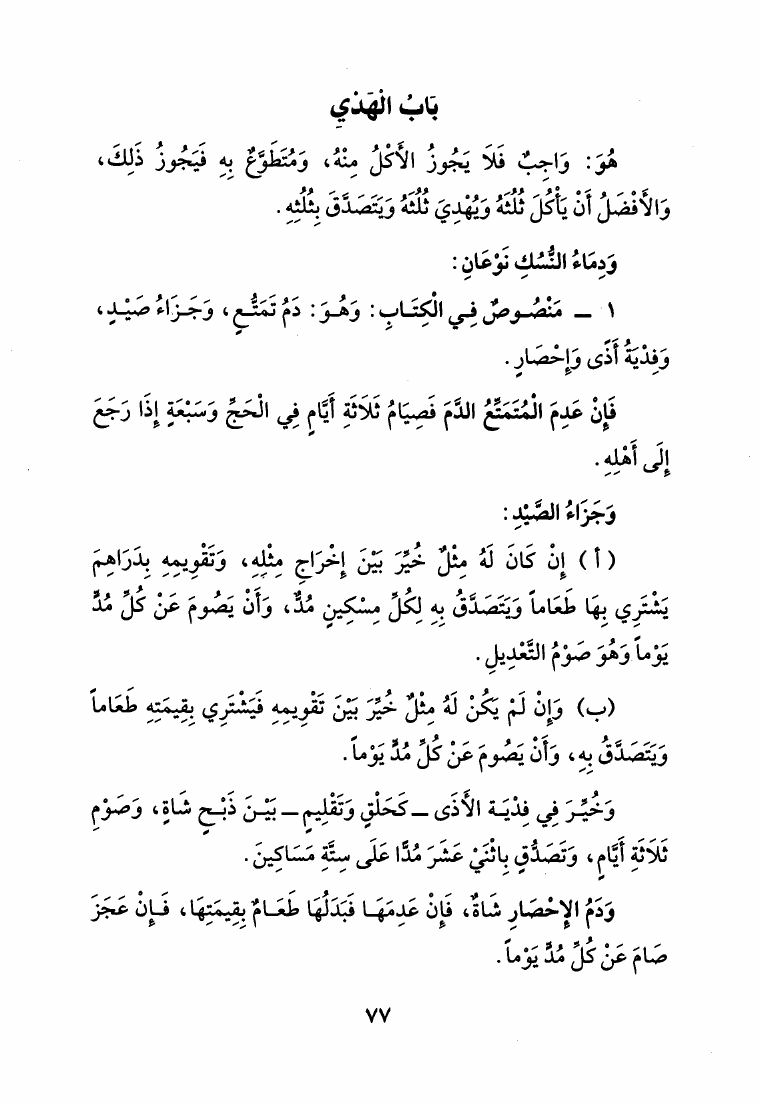 بَابُ الْهَدْيِ
هُوَ: وَاجِبٌ فَلَا يَجُوزُ الأَكْلُ مِنْهُ، وَمُتَطَوَّعٌ بِهِ فَيَجُوزُ ذٰلِكَ،
وَالأَفْضَلُ أَنْ يَأْكُلَ ثُلُثَهُ وَيُهْدِيَ ثُلُثَهُ وَيَتَصَدَّقَ بِثُلُثِهِ.
وَدِمَاءُ النُّسُكِ نَوْعَانِ:
١ ــ مَنْصُوصٌ فِي الْكِتَابِ: وَهُوَ: دَمُ تَمَتُّعٍ، وَجَزَاءُ صَيْدٍ،
وَفِدْيَةُ أَذًى وَإِحْصَارٍ.
فَإِنْ عَدِمَ الْمُتَمَتِّعُ الدَّمَ فَصِيَامُ ثَلَاثَةِ أَيَّامٍ فِي الْحَجِّ وَسَبْعَةٍ إِذَا رَجَعَ
إِلَى أَهْلِهِ.
وَجَزَاءُ الصَّيْدِ:
(أ) إِنْ كَانَ لَهُ مِثْلٌ خُيِّرَ بَيْنَ إِخْرَاجِ مِثْلِهِ، وَتَقْوِيمِهِ بِدَرَاهِمَ
يَشْتَرِي بِهَا طَعَاماً وَيَتَصَدَّقُ بِهِ لِكُلِّ مِسْكِينٍ مُدٌّ، وَأَنْ يَصُومَ عَنْ كُلِّ مُدٍّ
يَوْماً وَهُوَ صَوْمُ التَّعْدِيلِ.
(ب) وَإِنْ لَمْ يَكُنْ لَهُ مِثْلٌ خُيِّرَ بَيْنَ تَقْوِيمِهِ فَيَشْتَرِي بِقِيمَتِهِ طَعَاماً
وَيَتَصَدَّقُ بِهِ، وَأَنْ يَصُومَ عَنْ كُلِّ مُدٍّ يَوْماً.
وَخُيِّرَ فِي فِدْيَةِ الأَذَى ــ كَحَلْقٍ وَتَقْلِيمٍ ــ بَيْنَ ذَبْحِ شَاةٍ، وَصَوْمِ
ثَلَاثَةِ أَيَّامٍ، وَتَصَدُّقٍ بِاثْنَيْ عَشَرَ مُدًّا عَلَى سِتَّةِ مَسَاكِينَ.
وَدَمُ الإِحْصَارِ شَاةٌ، فَإِنْ عَدِمَهَا فَبَدَلُهَا طَعَامٌ بِقِيمَتِهَا، فَإِنْ عَجَزَ
صَامَ عَنْ كُلِّ مُدٍّ يَوْماً.
٧٧